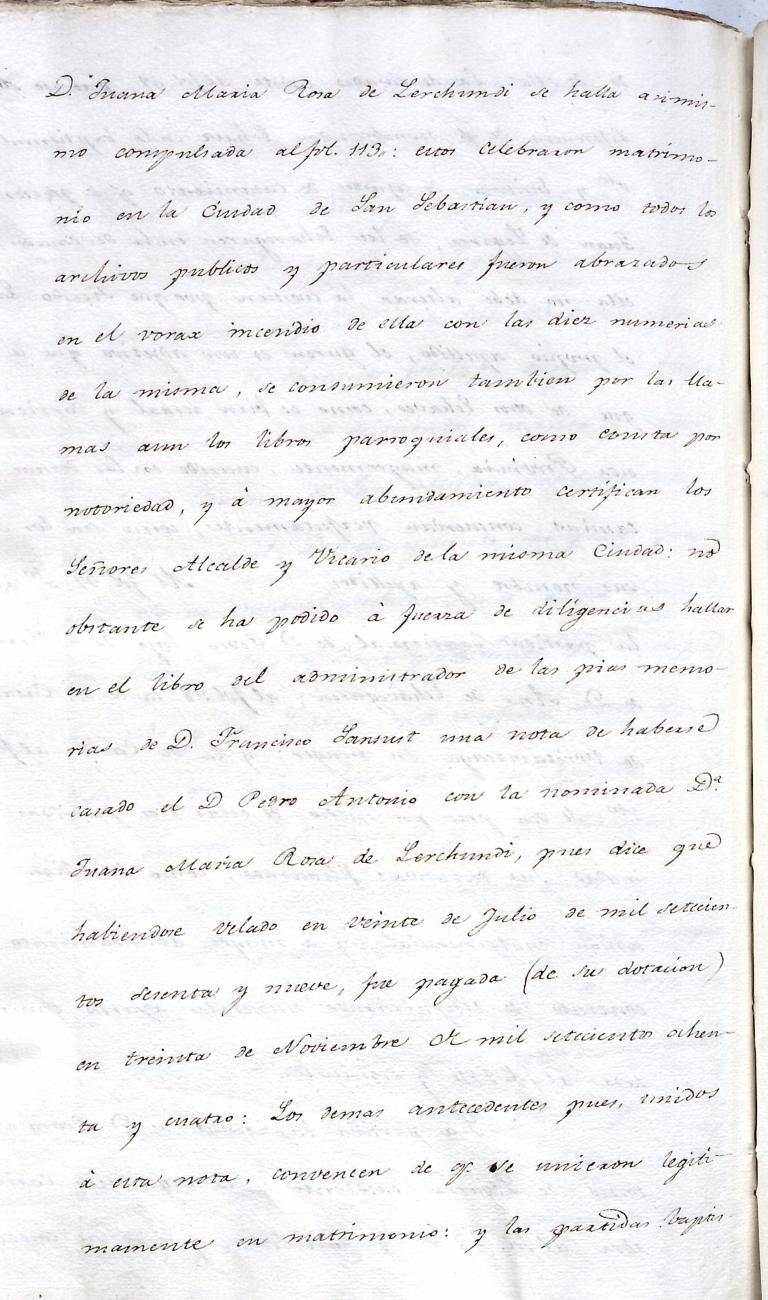 D.ª Juana Maria Rosa de Lerchundi se halla asimis-
mo compulsada al fol. 113,,: estos celebraron matrimo-
nio en la Ciudad de San Sebastian, y como todos los
archivos publicos y particulares fueron abrazados
en el vorax incendio de ella con las diez numerias
de la misma, se consumieron tambien por las lla-
mas aun los libros parroquiales, como consta por
notoriedad, y à mayor abundamiento certifican los
Señores Alcalde y Vicario de la misma Ciudad: no
obstante se ha podido à fuerza de diligencias hallar
en el libro del administrador de las pias memo-
rias de D. Francisco Sansust una nota de haberse
casado el D Pedro Antonio con la nominada D.ª
Juana Maria Rosa de Lerchundi, pues dice que
habiendose velado en veinte de Julio de mil setecien-
tos sesenta y nueve, fue pagada (de su dotacion)
en treinta de Noviembre de mil setecientos ochen-
ta y cuatro: Los demas antecedentes pues, unidos
à esta nota, convencen de q.e se unieron legiti-
mamente en matrimonio: y las partidas baptis-